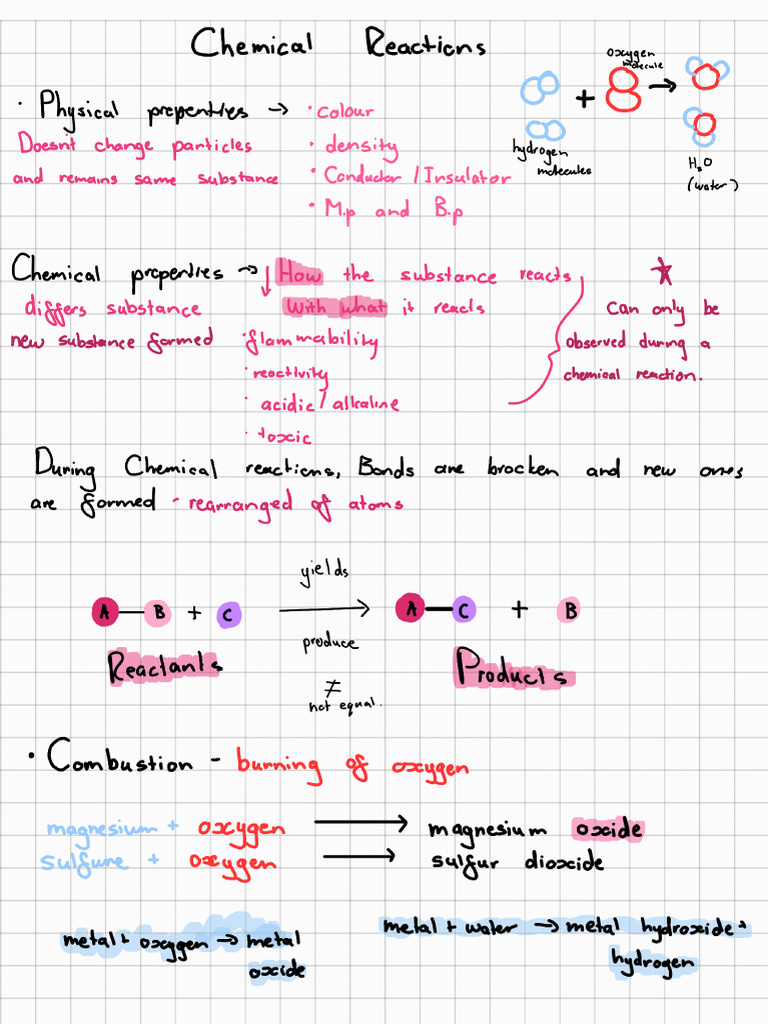 Chemical Reactions
oxygen
molecule
+ →
hydrogen
molecules
H₂O
(water)
· Physical propenties → · Colour
Doesn't change particles · density
and remains same substance · Conductor / Insulator
· M.p and B.p
Chemical propenties → ↓ How the substance reacts
differs substance with what it reacts
new substance formed · flammability
· reactivity
· acidic / alkaline
· toxic
★
Can only be
observed during a
chemical reaction.
During Chemical reactions, Bonds are brocken and new ones
are formed - rearranged of atoms
yields
A — B + C → A — C + B
produce
Reactants Products
≠
not equal.
· Combustion - burning of oxygen
magnesium + oxygen → magnesium oxide
sulfure + oxygen → sulfur dioxide
metal + oxygen → metal
oxide
metal + water → metal hydroxide +
hydrogen